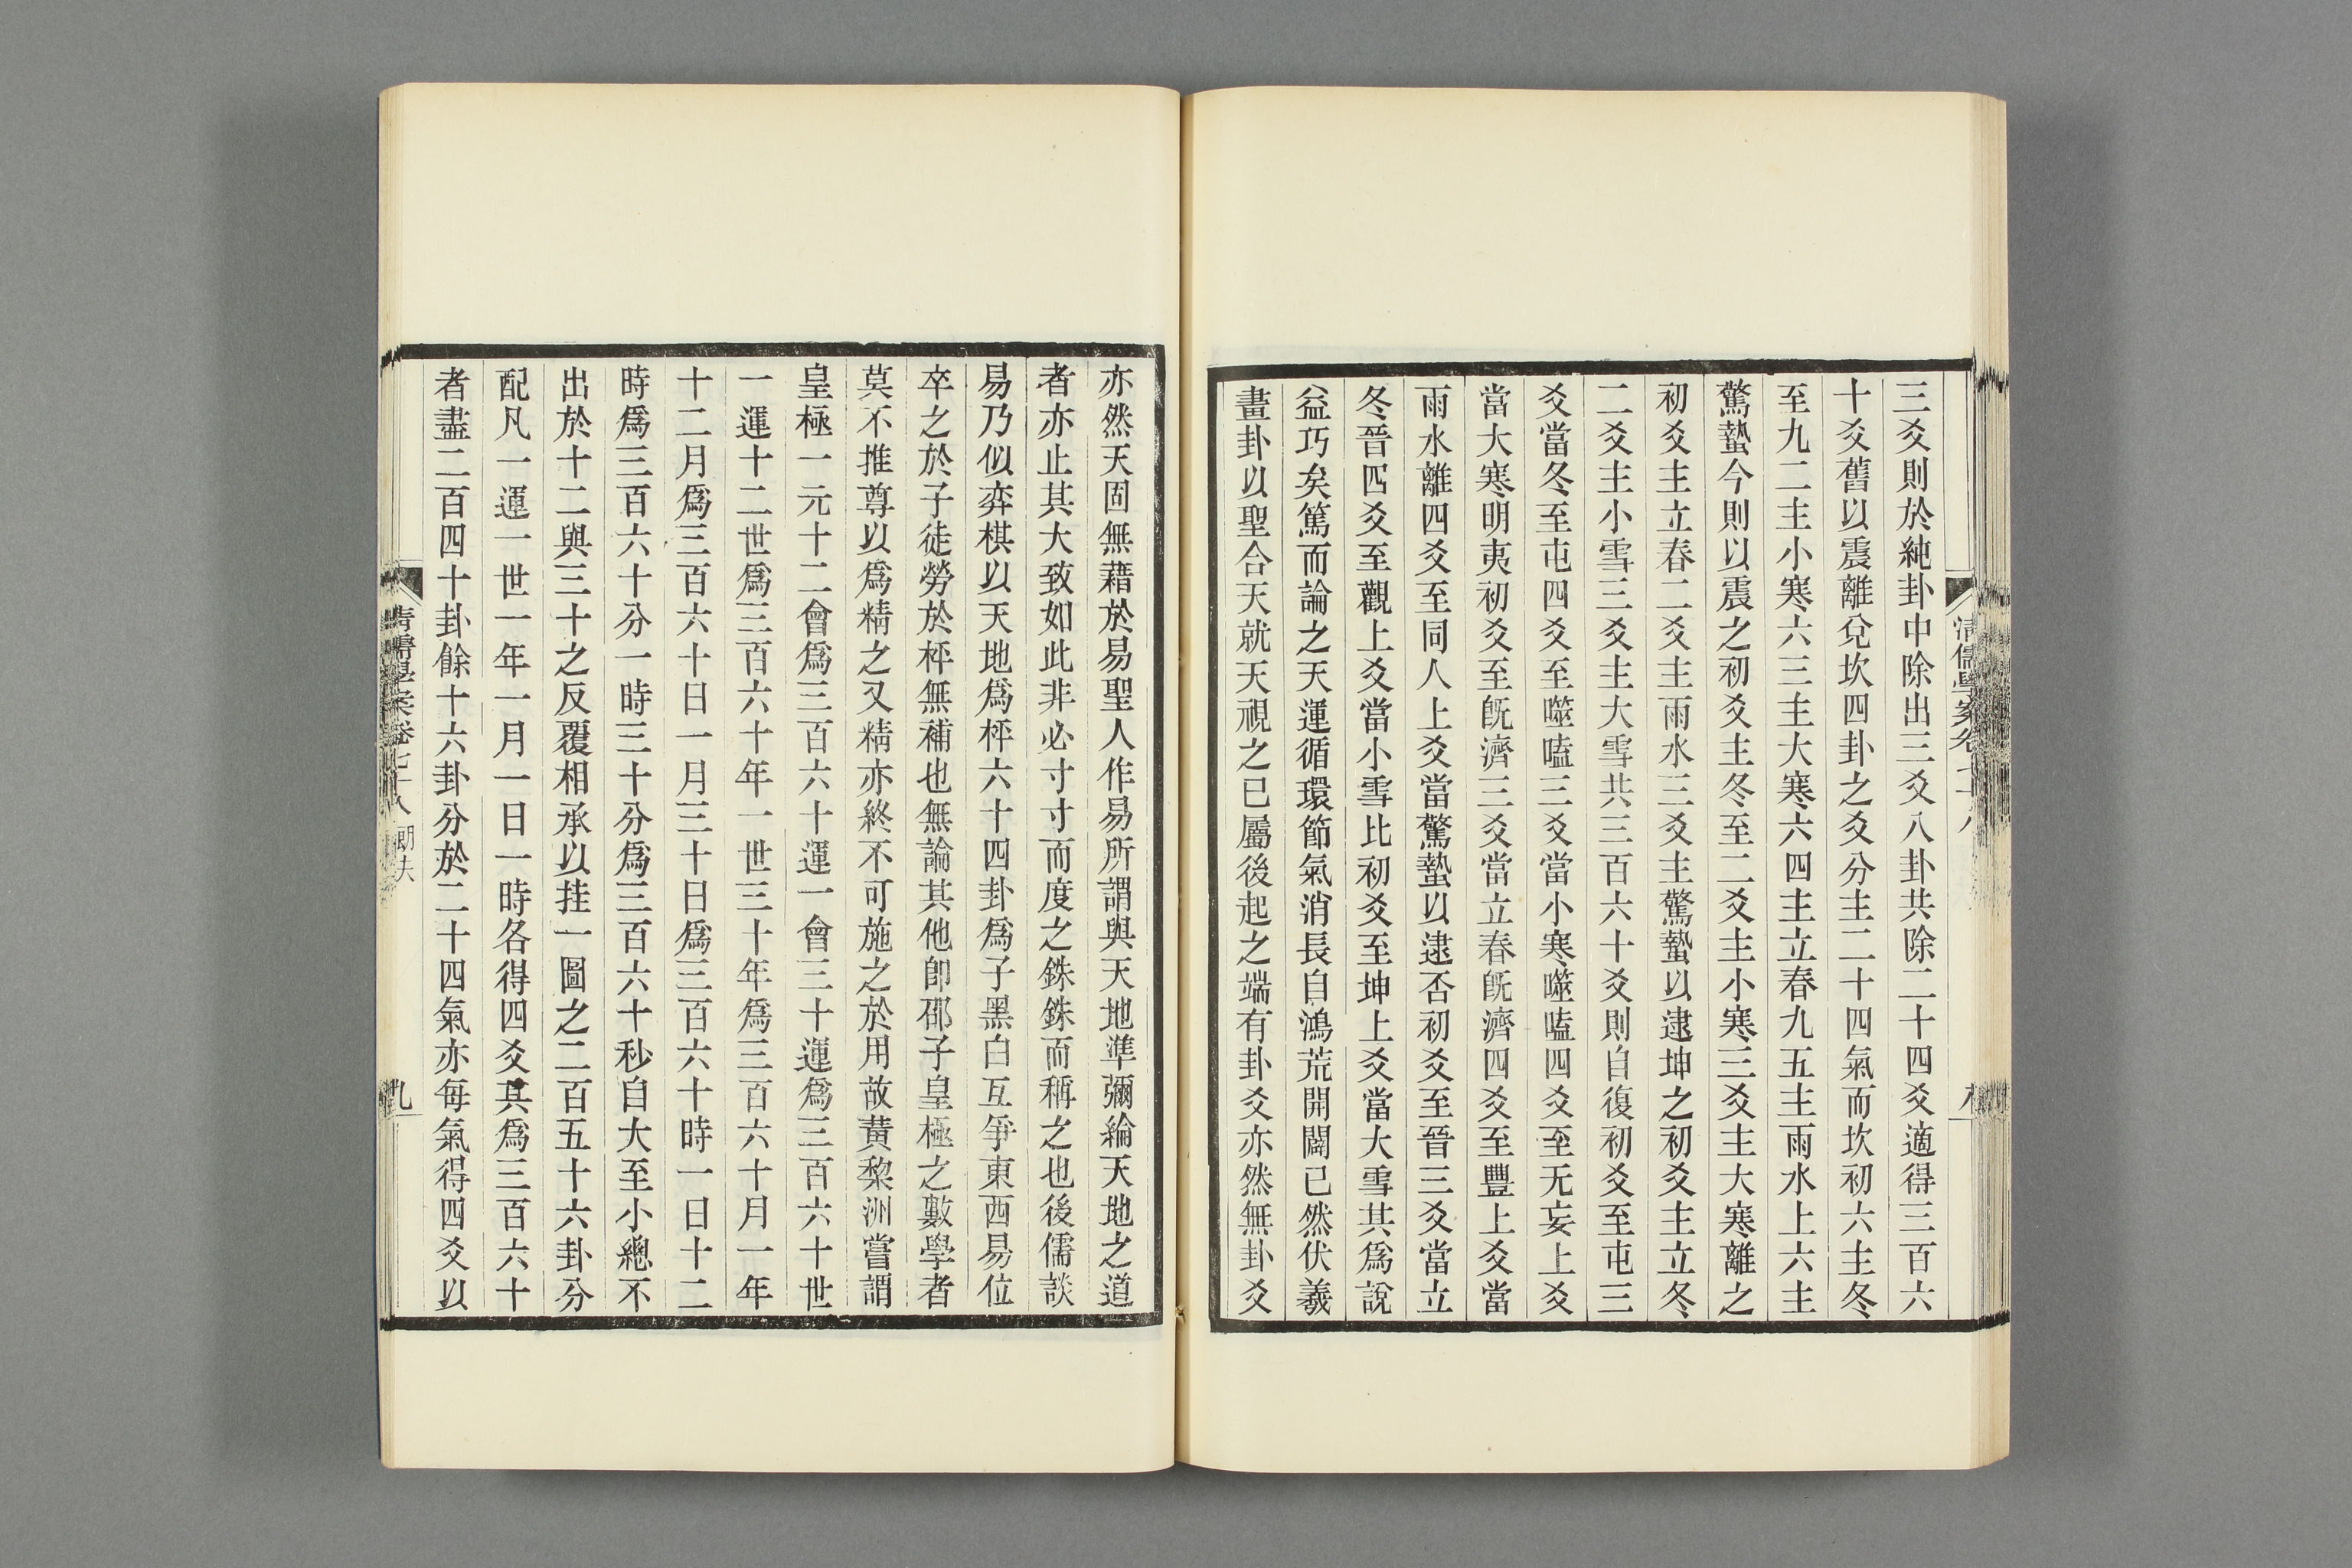 三爻則於純卦中除出三爻八卦共除二十四爻適得三百六
十爻舊以震離兌坎四卦之爻分主二十四氣而坎初六主冬
至九二主小寒六三主大寒六四主立春九五主雨水上六主
驚蟄今則以震之初爻主冬至二爻主小寒三爻主大寒離之
初爻主立春二爻主雨水三爻主驚蟄以逮坤之初爻主立冬
二爻主小雪三爻主大雪共三百六十爻則自復初爻至屯三
爻當冬至屯四爻至噬嗑三爻當小寒噬嗑四爻至无妄上爻
當大寒明夷初爻至旣濟三爻當立春旣濟四爻至豐上爻當
雨水離四爻至同人上爻當驚蟄以逮否初爻至晉三爻當立
冬晉四爻至觀上爻當小雪比初爻至坤上爻當大雪其爲說
益巧矣篤而論之天運循環節氣消長自鴻荒開闢已然伏羲
畫卦以聖合天就天視之已屬後起之端有卦爻亦然無卦爻
亦然天固無藉於易聖人作易所謂與天地準彌綸天地之道
者亦止其大致如此非必寸寸而度之銖銖而稱之也後儒談
易乃似弈棋以天地爲枰六十四卦爲子黑白互爭東西易位
卒之於子徒勞於枰無補也無論其他卽邵子皇極之數學者
莫不推尊以爲精之又精亦終不可施之於用故黃棃洲嘗謂
皇極一元十二會爲三百六十運一會三十運爲三百六十世
一運十二世爲三百六十年一世三十年爲三百六十月一年
十二月爲三百六十日一月三十日爲三百六十時一日十二
時爲三百六十分一時三十分爲三百六十秒自大至小總不
出於十二與三十之反覆相承以挂一圖之二百五十六卦分
配凡一運一世一年一月一日一時各得四爻其爲三百六十
者盡二百四十卦餘十六卦分於二十四氣亦每氣得四爻以
清儒學案卷七十八
九